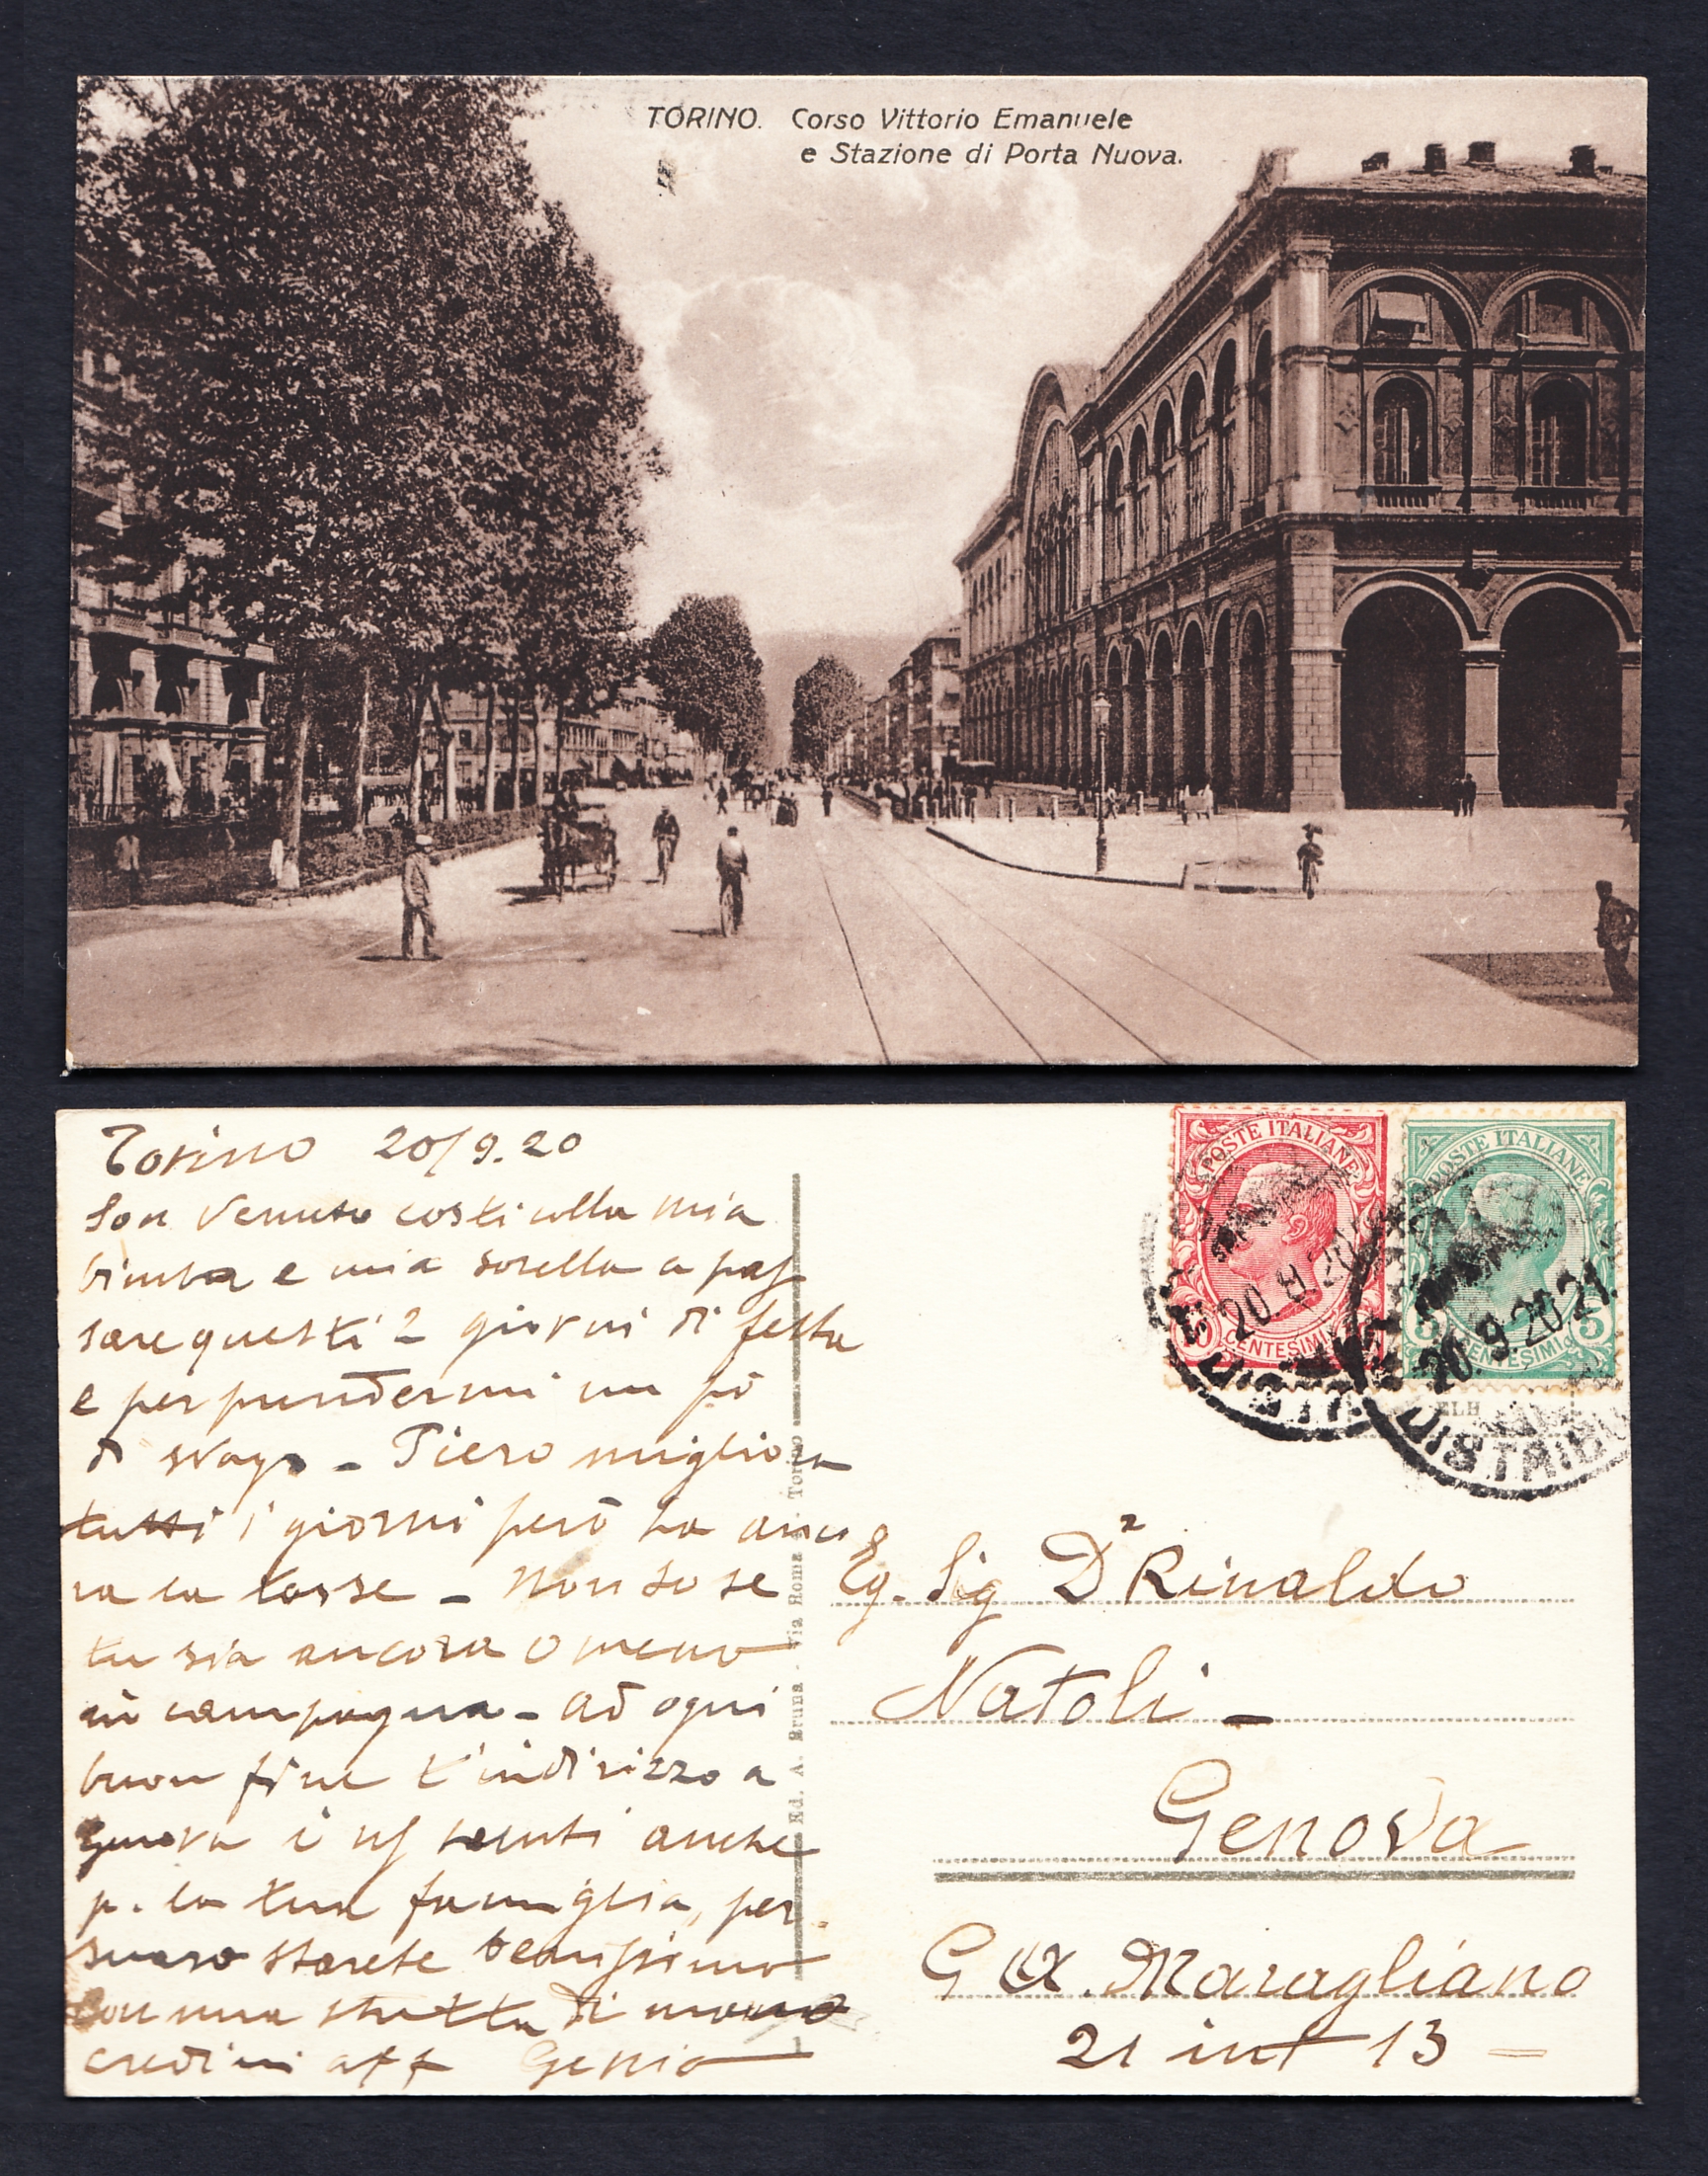 TORINO. Corso Vittorio Emanuele
e Stazione di Porta Nuova.
Torino 20/9.20
Son venuto costi colla mia
bimba e mia sorella a pas
sare questi 2 giorni di festa
e per prendermi un pò
di svago - Piero migliora
tutti i giorni però ha anco
ra la tosse - Non so se
tu sia ancora o meno
in campagna - ad ogni
buon fine t'indirizzo a
Genova i saluti anche
p. la tua famiglia, per
suaso starete benissimo
Con una stretta di mano
credimi aff Genio
Ed. A. Bruna - Via Roma - Torino
POSTE ITALIANE
10 CENTESIMI
POSTE ITALIANE
5 CENTESIMI 5
20.9.20
20.9.20 21
DISTRIB
DISTRIBU
Eg. Sig Dr Rinaldo
Natoli -
Genova
Maragliano
21 int 13 =